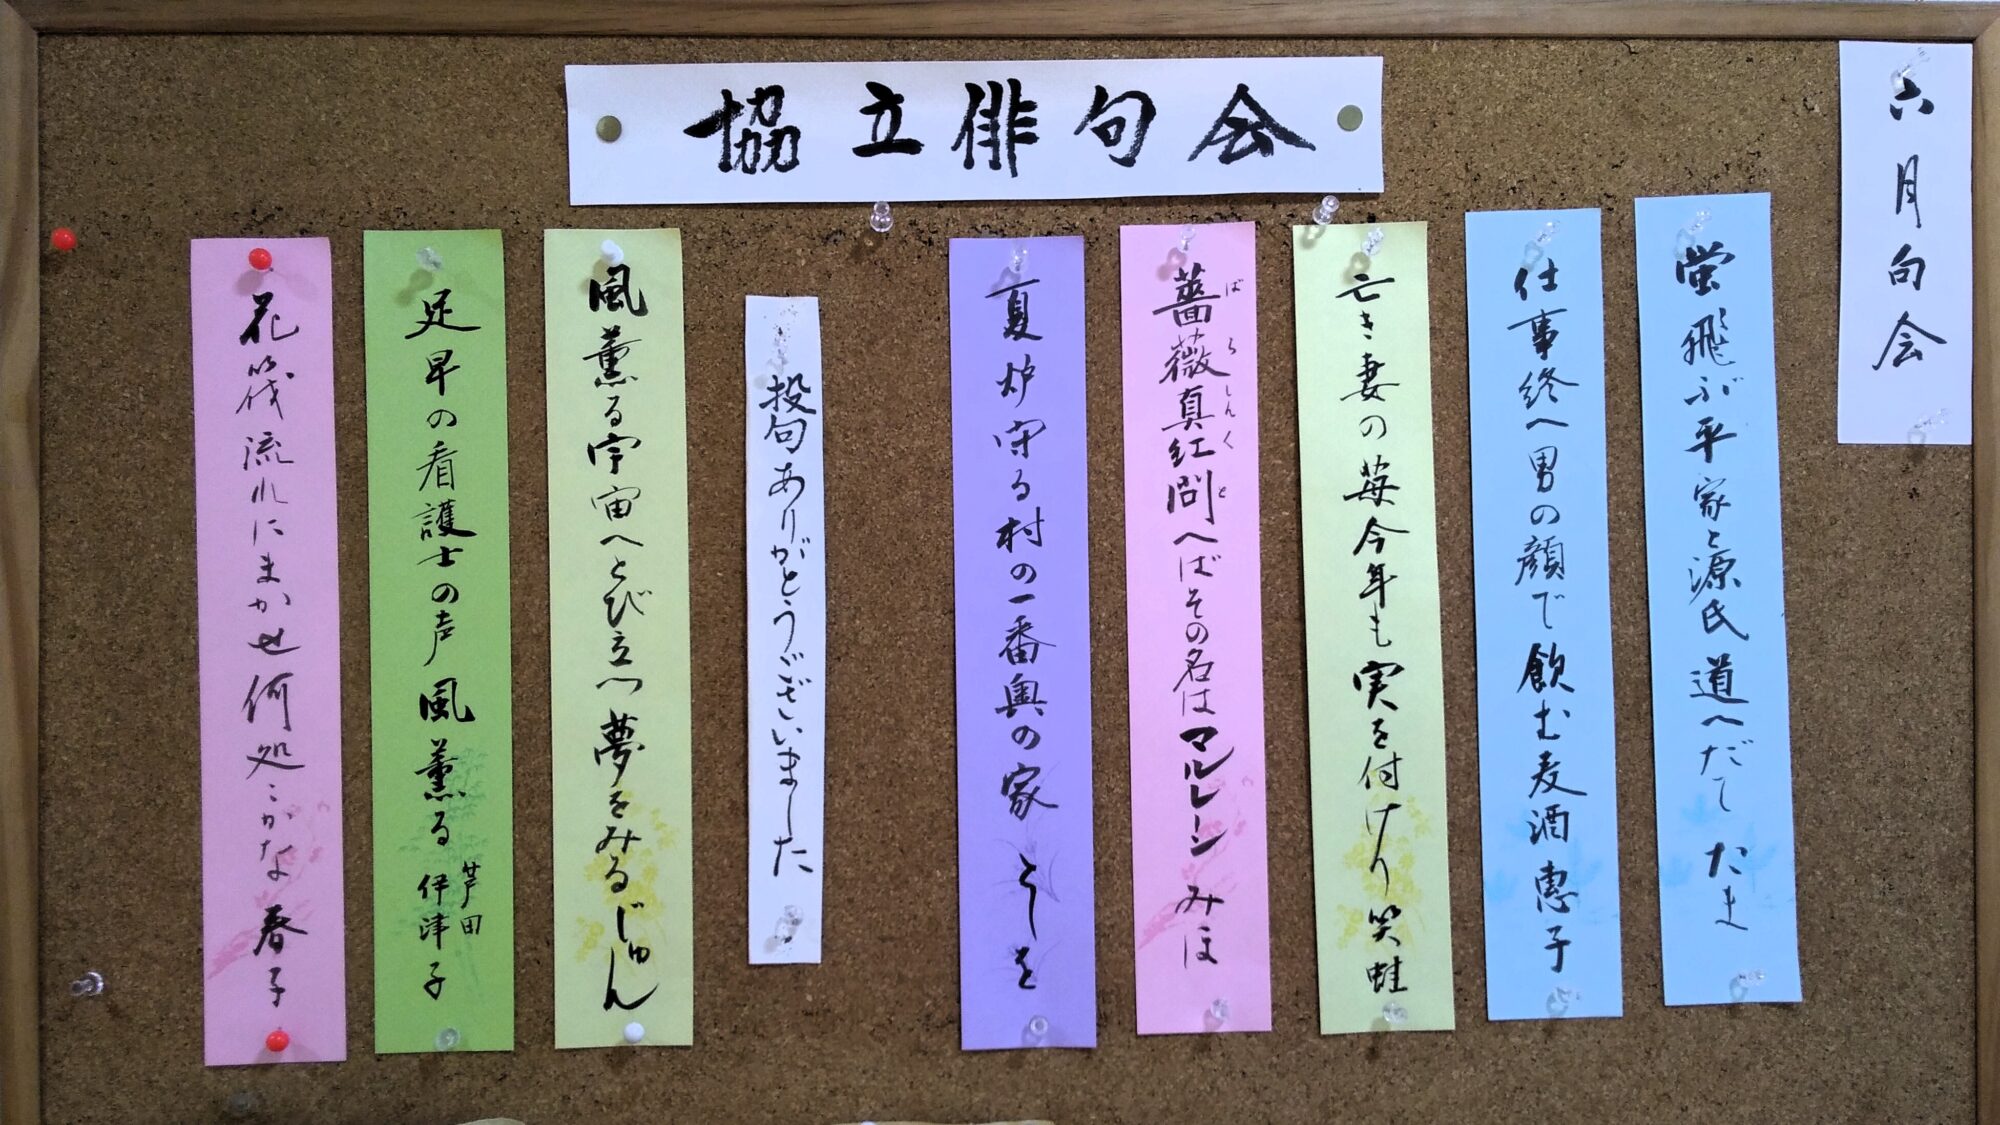 協立俳句会
六月句会
蛍飛ぶ平家と源氏道へだて たま
仕事終へ男の顔で飲む麦酒 恵子
亡き妻の苺今年も実を付けり 笑蛙
薔薇真紅問へばその名はマルレーン みほ
ばら しんく と
夏炉守る村の一番奥の家 としを
投句ありがとうございました
風薫る宇宙へとび立つ夢をみる じゅん
足早の看護士の声風薫る 芦田伊津子
花筏流れにまかせ何処こがな 春子